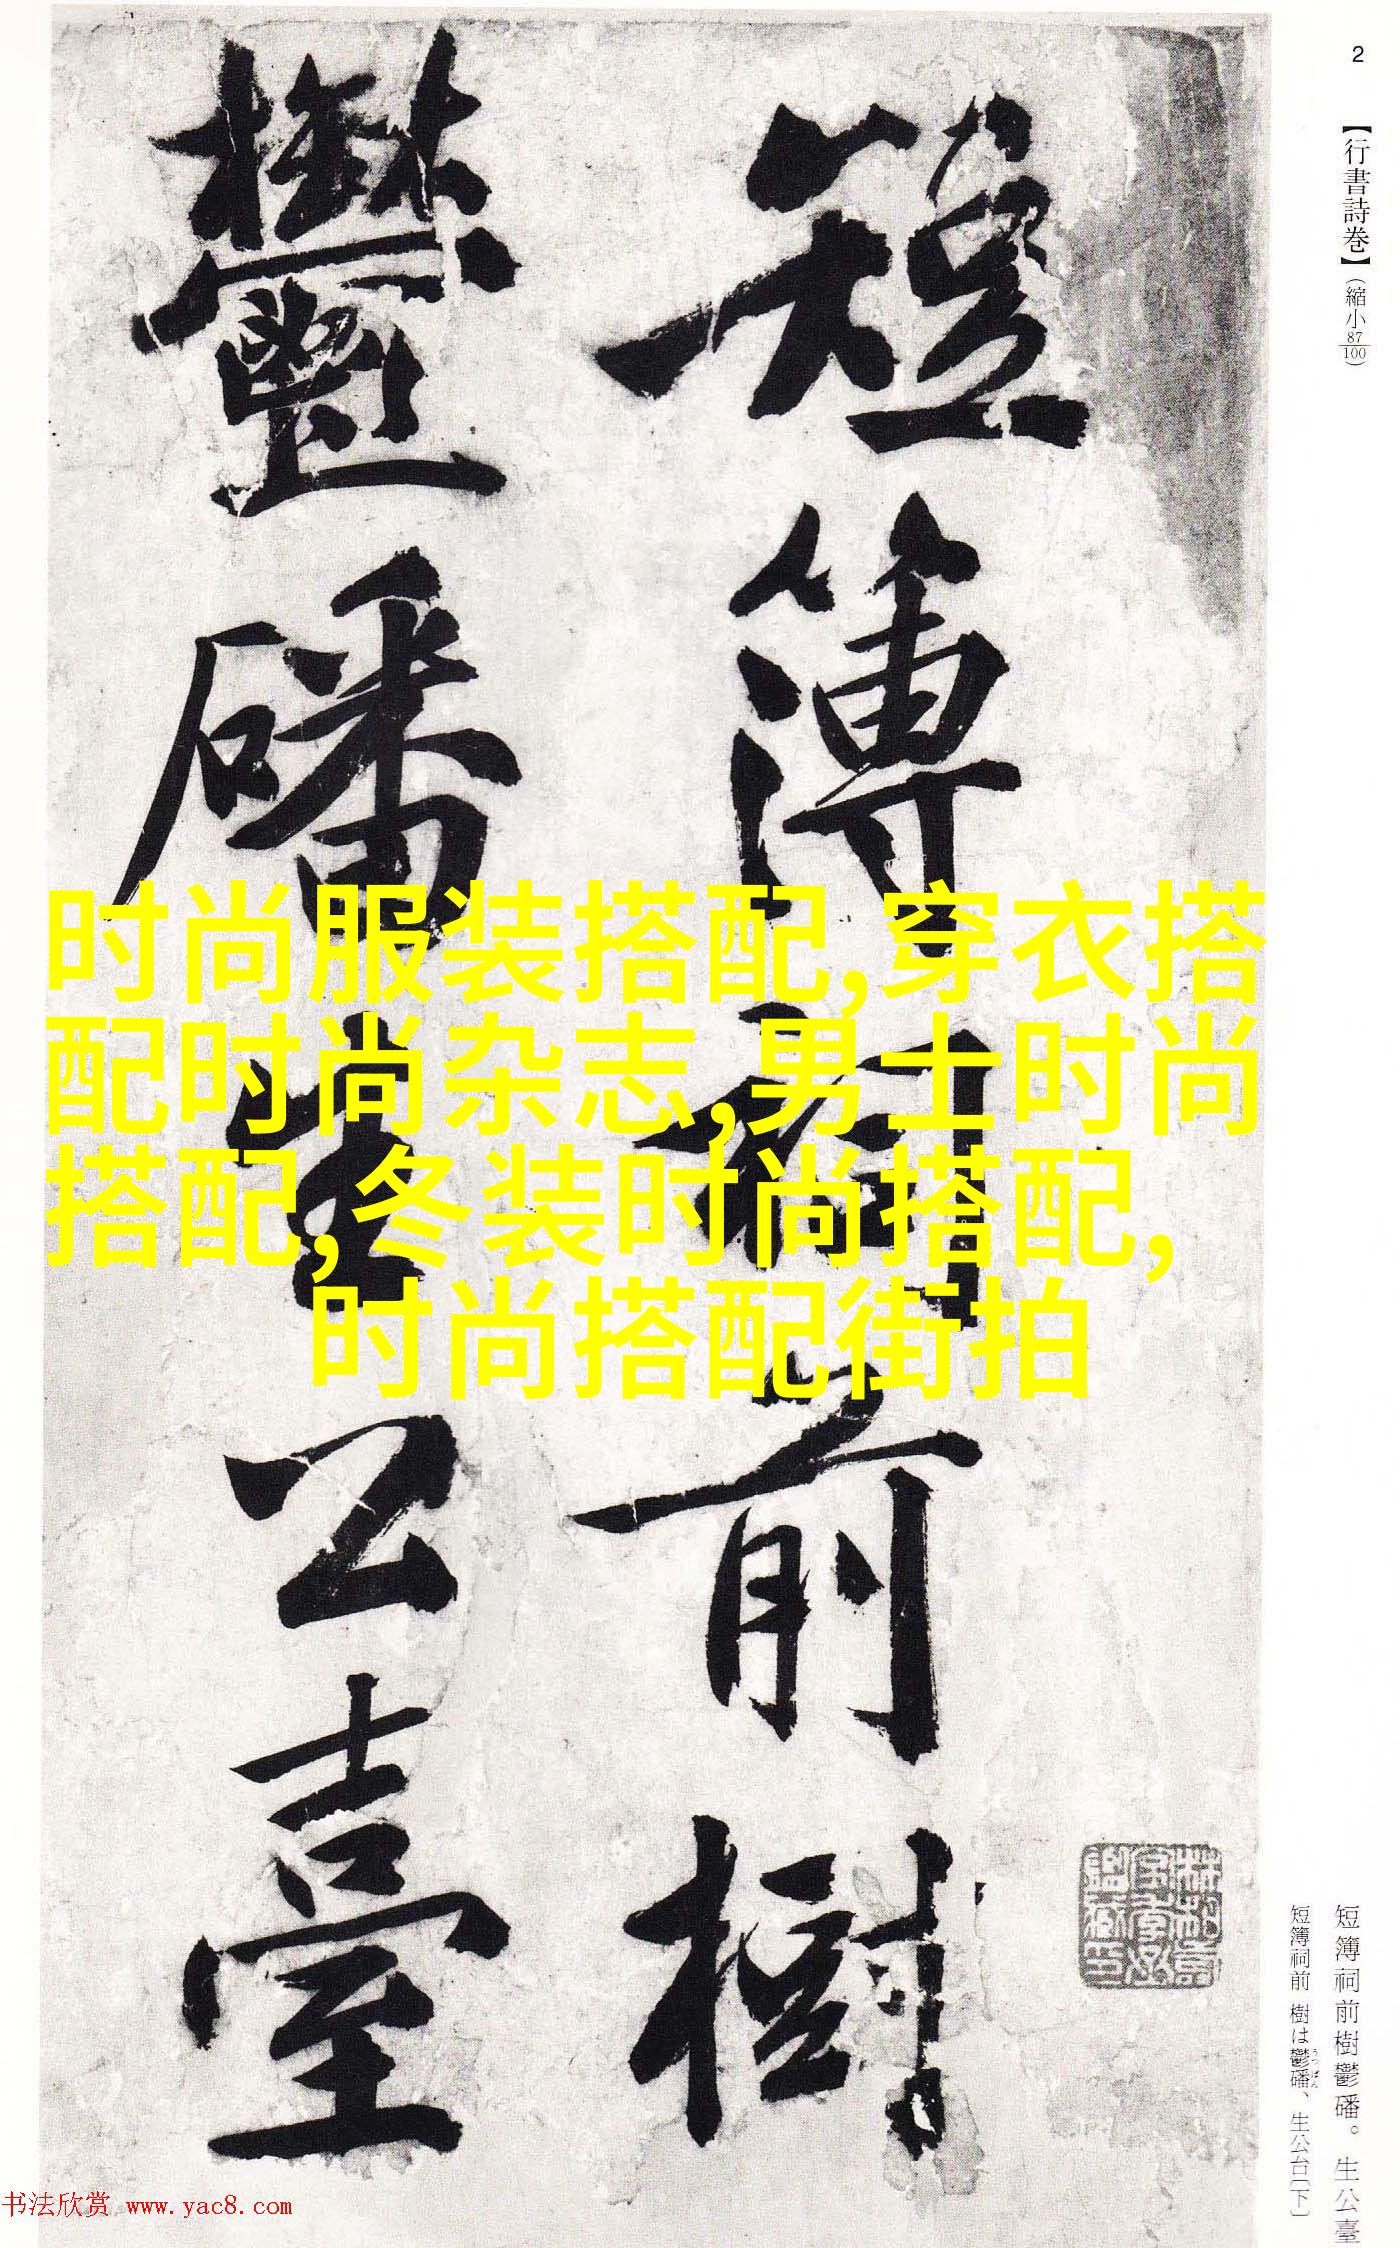 2
【行書詩巻】(縮小87/100)
短簿祠前樹
鬱磻生公臺
时尚服装搭配,穿衣搭
配时尚杂志,男士时尚
搭配,冬装时尚搭配,
时尚搭配街拍
短簿祠前樹鬱磻。生公臺
短簿祠前 樹は鬱磻、生公台〔下〕
うっぱん
书法欣赏 www.yac8.com